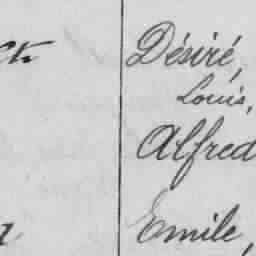 Désiré,
Louis,
Alfred
Emile,